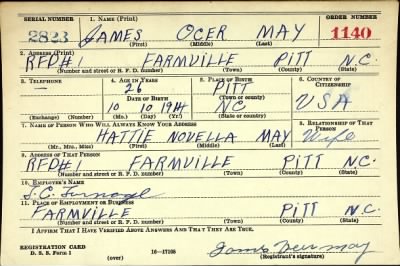 SERIAL NUMBER 1. NAME (Print) ORDER NUMBER
2823 JAMES OCER MAY 1140
(First) (Middle) (Last)
2. ADDRESS (Print)
RFD#1 FARMVILLE PITT N.C.
(Number and street or R. F. D. number) (Town) (County) (State)
3. TELEPHONE 4. AGE IN YEARS 5. PLACE OF BIRTH 6. COUNTRY OF CITIZENSHIP
26 PITT
DATE OF BIRTH (Town or county)
10 10 1914 NC USA
(Exchange) (Number) (Mo.) (Day) (Yr.) (State or country)
7. NAME OF PERSON WHO WILL ALWAYS KNOW YOUR ADDRESS 8. RELATIONSHIP OF THAT PERSON
HATTIE NOVELLA MAY Wife
(Mr., Mrs., Miss) (First) (Middle) (Last)
9. ADDRESS OF THAT PERSON
RFD#1 FARMVILLE PITT N.C.
(Number and street or R. F. D. number) (Town) (County) (State)
10. EMPLOYER'S NAME
11. PLACE OF EMPLOYMENT OR BUSINESS
FARMVILLE PITT N.C.
(Number and street or R. F. D. number) (Town) (County) (State)
I AFFIRM THAT I HAVE VERIFIED ABOVE ANSWERS AND THAT THEY ARE TRUE.
REGISTRATION CARD
D. S. S. Form 1 (over) 16—17105 (Registrant's signature)
James Ocer May